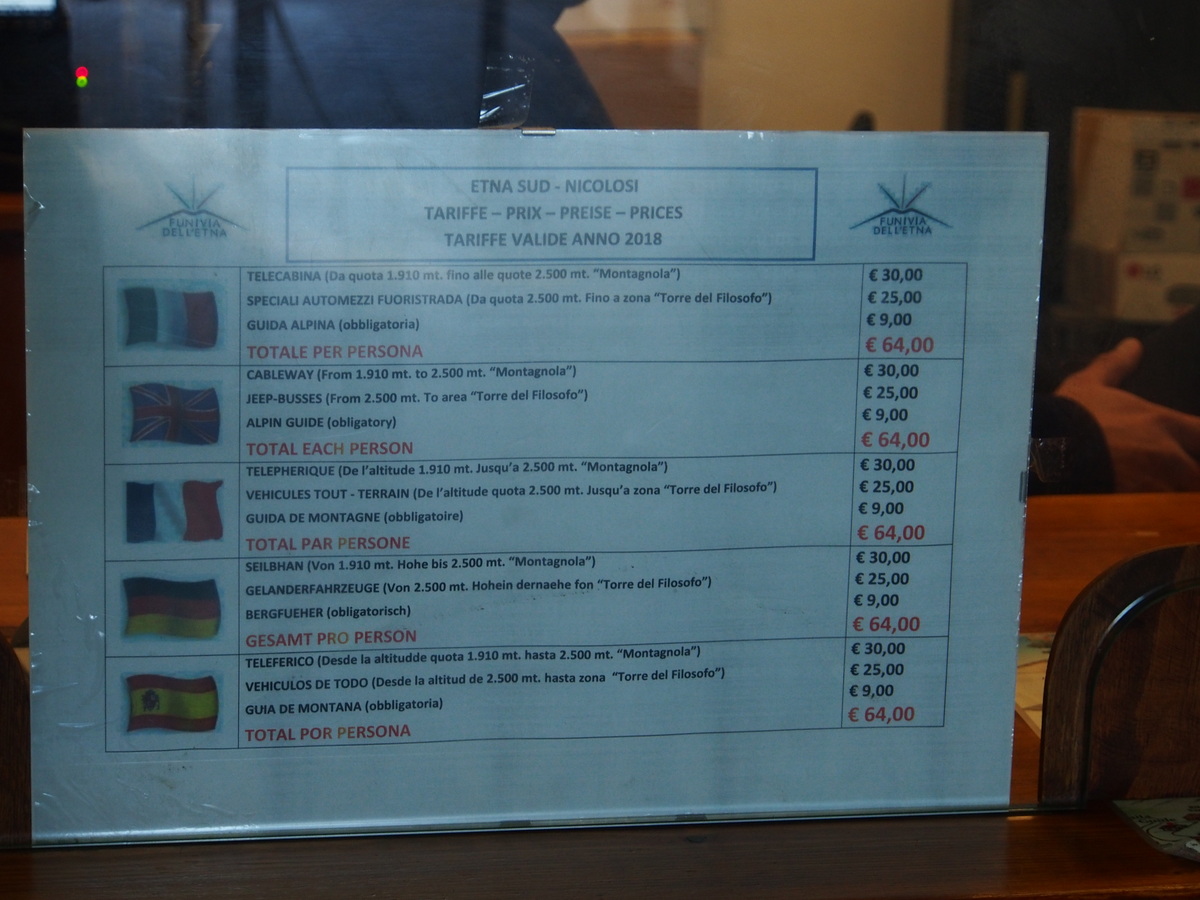 ETNA SUD - NICOLOSI
TARIFFE – PRIX – PREISE – PRICES
TARIFFE VALIDE ANNO 2018
FUNIVIA
DELL'ETNA
FUNIVIA
DELL'ETNA
TELECABINA (Da quota 1.910 mt. fino alle quote 2.500 mt. “Montagnola”) € 30,00
SPECIALI AUTOMEZZI FUORISTRADA (Da quota 2.500 mt. Fino a zona “Torre del Filosofo”) € 25,00
GUIDA ALPINA (obbligatoria) € 9,00
TOTALE PER PERSONA € 64,00
CABLEWAY (From 1.910 mt. to 2.500 mt. “Montagnola”) € 30,00
JEEP-BUSSES (From 2.500 mt. To area “Torre del Filosofo”) € 25,00
ALPIN GUIDE (obligatory) € 9,00
TOTAL EACH PERSON € 64,00
TELEPHERIQUE (De l’altitude 1.910 mt. Jusqu’a 2.500 mt. “Montagnola”) € 30,00
VEHICULES TOUT - TERRAIN (De l’altitude quota 2.500 mt. Jusqu’a zona “Torre del Filosofo”) € 25,00
GUIDA DE MONTAGNE (obbligatoire) € 9,00
TOTAL PAR PERSONE € 64,00
SEILBHAN (Von 1.910 mt. Hohe bis 2.500 mt. “Montagnola”) € 30,00
GELANDERFAHRZEUGE (Von 2.500 mt. Hohein dernaehe fon “Torre del Filosofo”) € 25,00
BERGFUEHER (obligatorisch) € 9,00
GESAMT PRO PERSON € 64,00
TELEFERICO (Desde la altitudde quota 1.910 mt. hasta 2.500 mt. “Montagnola”) € 30,00
VEHICULOS DE TODO (Desde la altitud de 2.500 mt. hasta zona “Torre del Filosofo”) € 25,00
GUIA DE MONTANA (obbligatoria) € 9,00
TOTAL POR PERSONA € 64,00